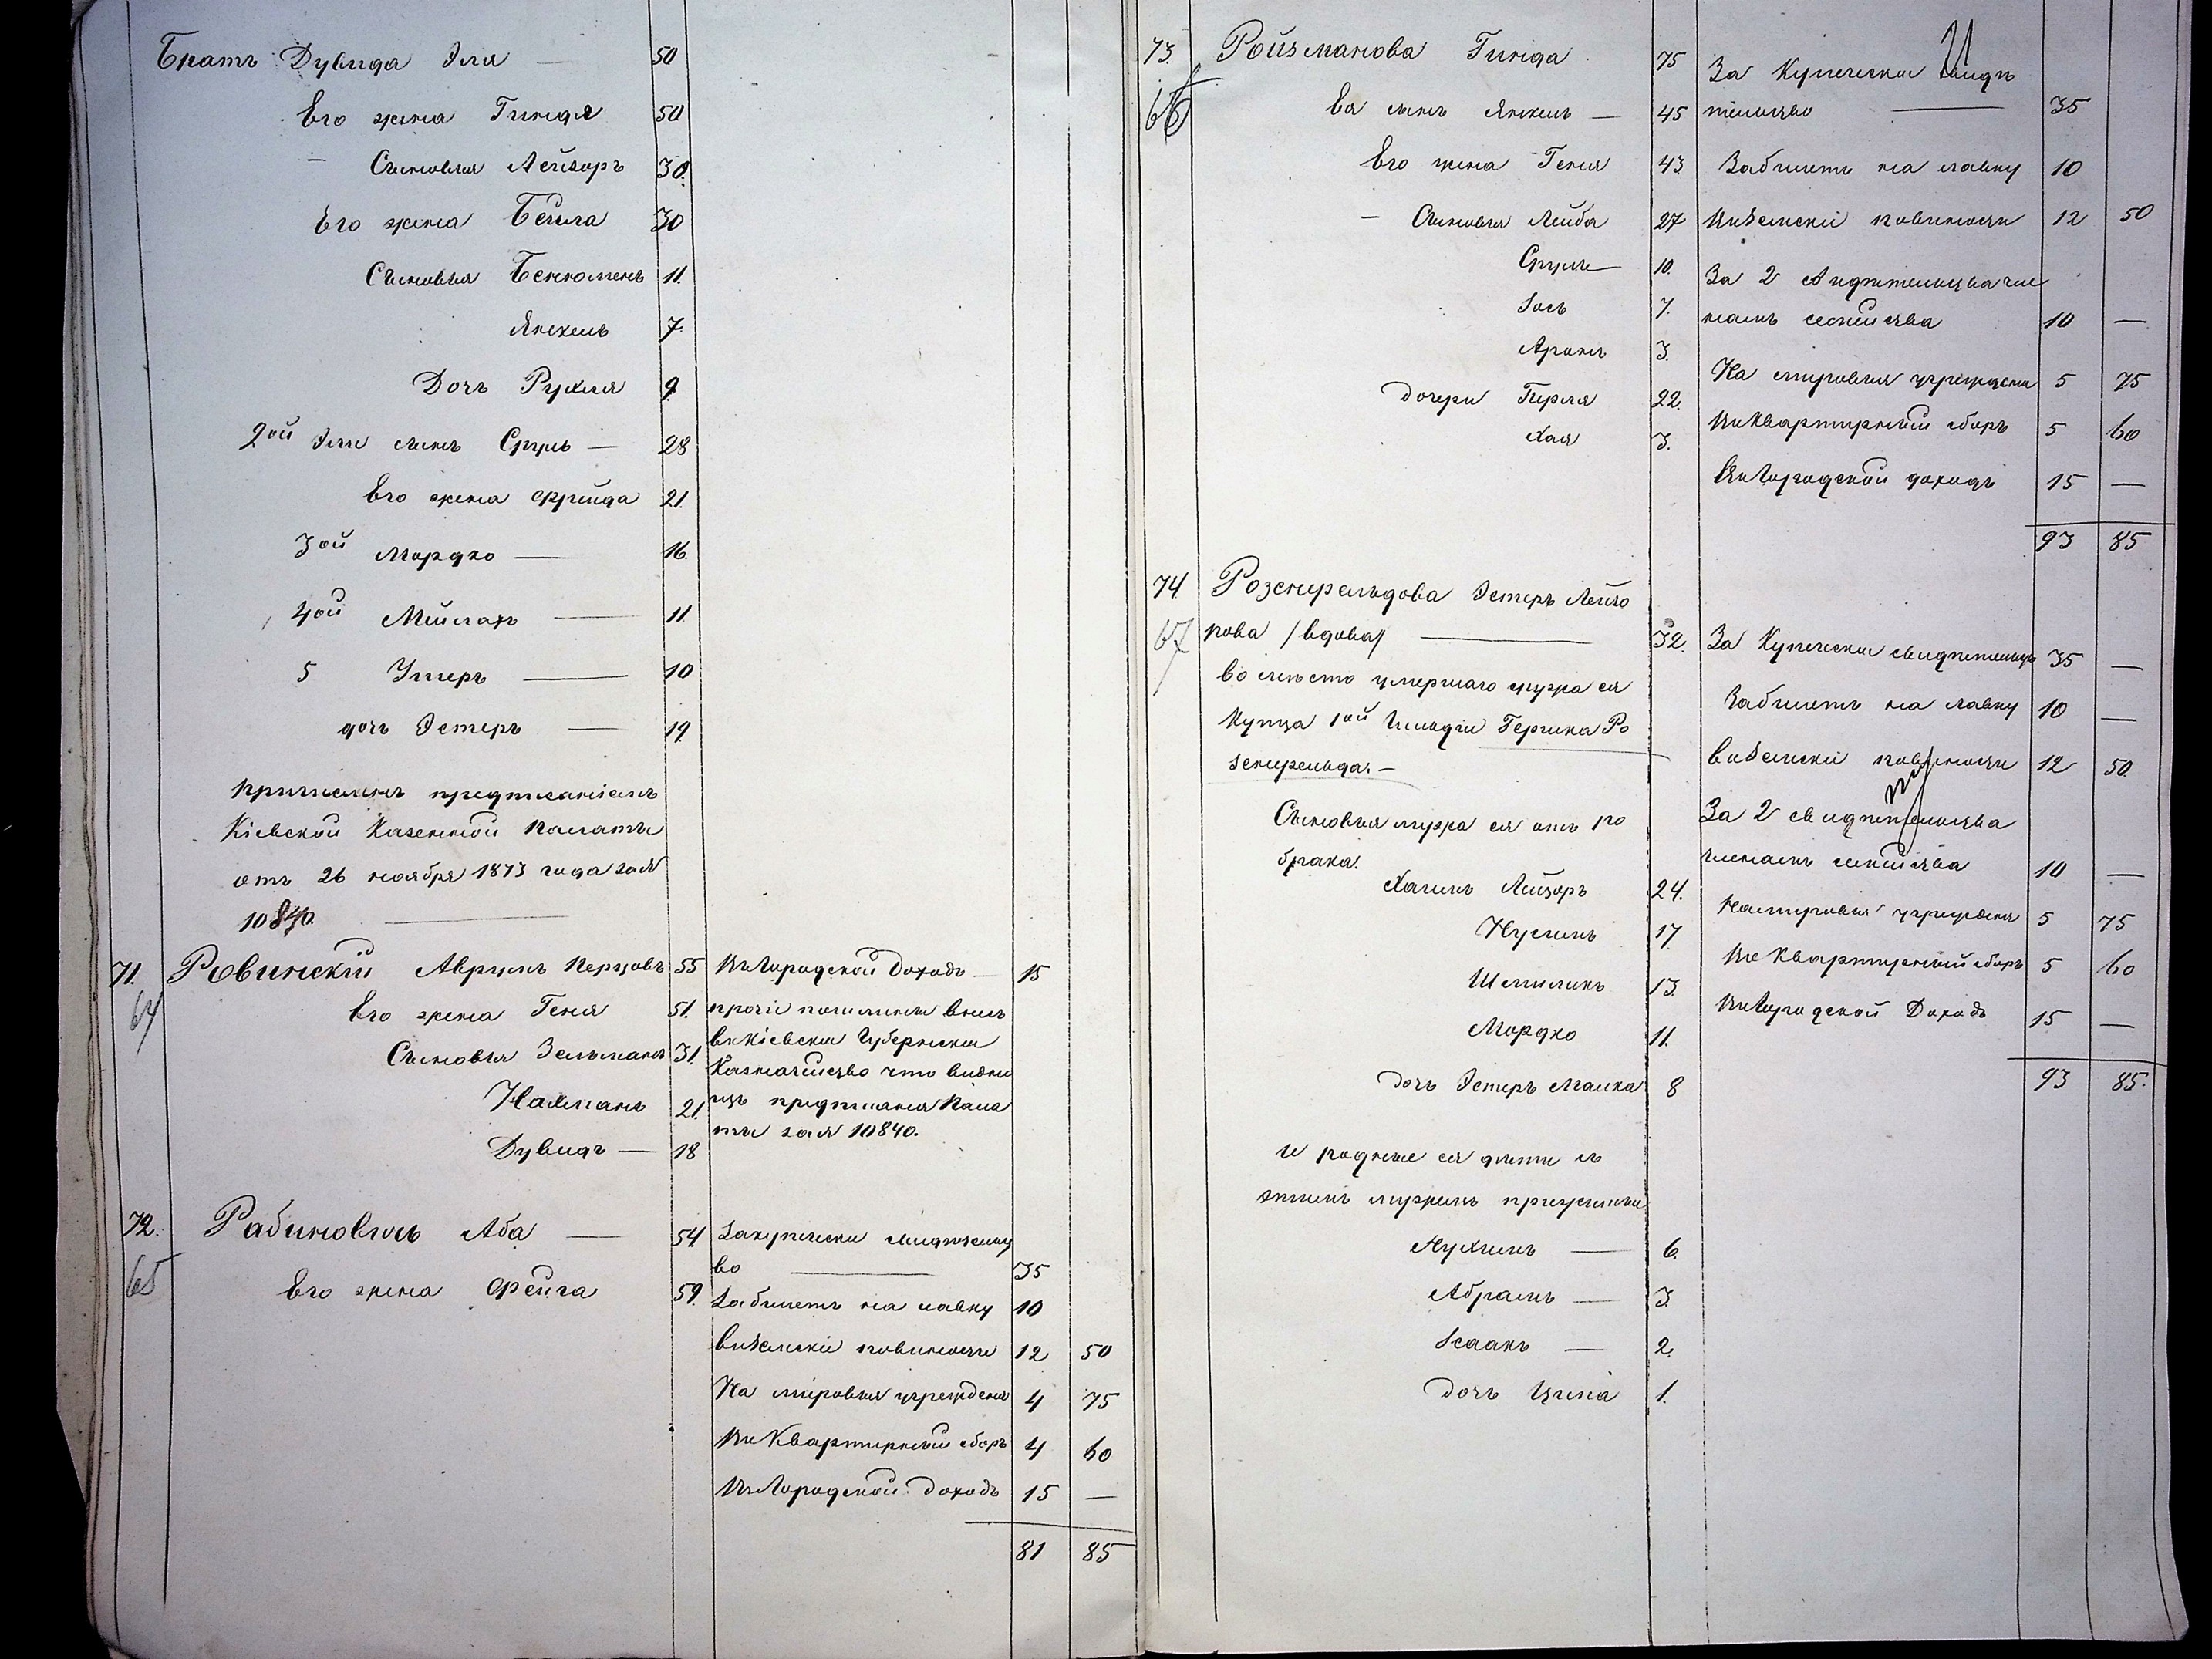 Братъ Дувида Эля — 50
Его жена Гиндя 50
— Сыновья Лейзоръ 30.
Его жена Бейла 30
Сыновья Бенюменъ 11.
Янкель 7.
Дочь Рухля 9.
2ой Эли сынъ Сруль — 28
Его жена Фрейда 21.
3ой Мордко — 16.
4ой Мейлахъ — 11
5 Умеръ — 10
дочь Эстеръ — 19
причисленъ предписаніемъ
Кіевской Казенной Палаты
отъ 26 ноября 1873 года за №
10840. —
71. Ровинскій Аврумъ Перцовъ 55
64
Его жена Геня 51.
Сыновья Зельманъ 31.
Нахманъ 21.
Дувидъ — 18
Въ Городской Доходъ — 15
прочіе пошлины внесъ
въ Кіевское Губернское
Казначейство что видно
изъ предписанія Пала
ты за № 10840.
72. Рабиновичъ Аба — 54
65
Его жена Фейга 59.
За купеческое свидѣтельст
во — 35
За билетъ на лавку 10
въ Земскіе повинности 12 50
На мировыя учрежденія 4 75
въ Квартирный сборъ 4 60
въ Городской доходъ 15 —
81 85
73. Ройзманова Гинда 75
66
Ея сынъ Янкель — 45
Его жена Геня 43
— Сыновья Лейба 27
Сруль — 10.
Іось 7.
Аронъ 3.
дочери Перля 22.
Хая 3.
За Купеческое свидѣ
тельство — 35
За билетъ на лавку 10
въ Земскіе повинности 12 50
За 2 свидѣтельства чле
намъ семейства 10 —
На мировыя учрежденія 5 75
въ Квартирный сборъ 5 60
въ Городской доходъ 15 —
93 85
74 Розенфельдова Эстеръ Лейзо
67 рова /вдова/ — 32.
во мѣсто умершаго мужа ея
Купца 1ой Гильдіи Гершка Ро
зенфельда. —
Сыновья мужа ея отъ 1го
брака.
Хаимъ Лейзоръ 24.
Нусимъ 17
Шмиликъ 13.
Мордко 11.
дочь Эстеръ Малка 8
и родные ея дѣти съ
этимъ мужемъ прижитые
Нухимъ — 6.
Абрамъ — 3.
Исаакъ — 2.
дочь Ципа 1.
За Купеческое свидѣтельство 35 —
За билетъ на лавку 10 —
въ Земскіе повинности 12 50.
За 2 свидѣтельства
членамъ семейства 10 —
На мировыя учрежденія 5 75
въ Квартирный сборъ 5 60
въ Городской Доходъ 15 —
93 85.